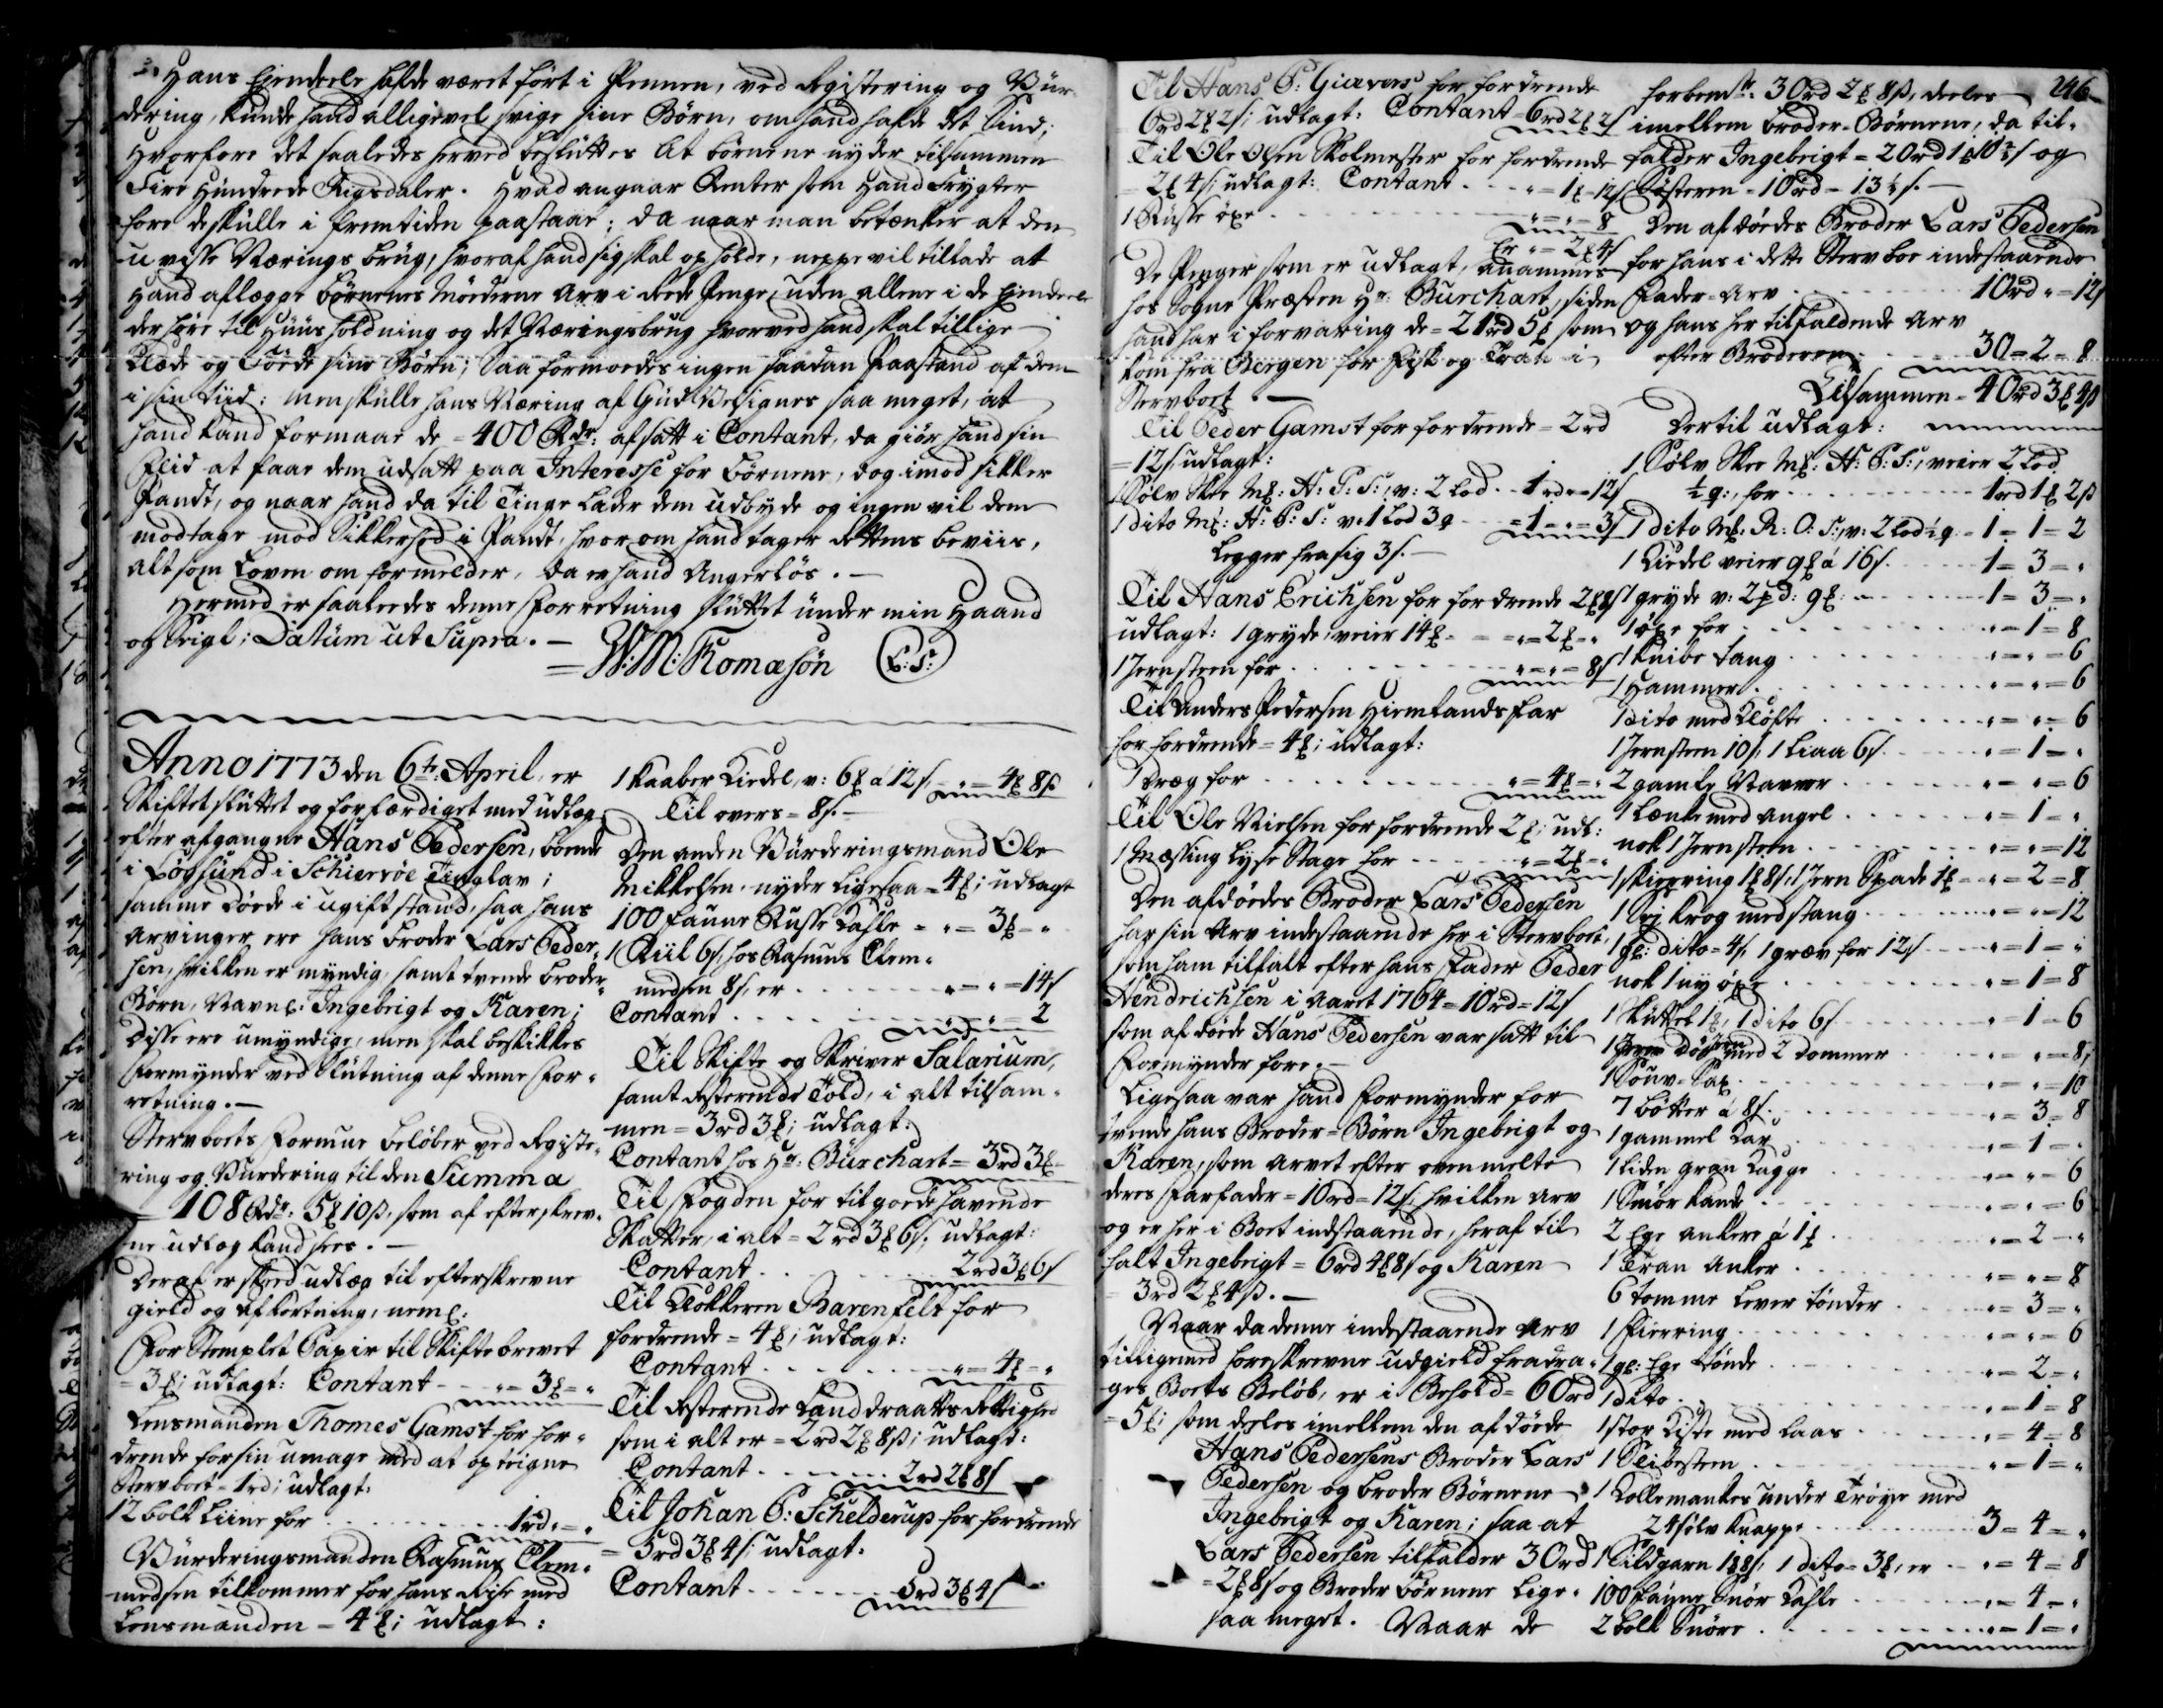 Hans Ejendeele hafde været ført i Pennen, ved Registering og Vür-
dering, kunde hand alligevel svige sine Børn, om hand hafde det Sind;
Hvorfore det saaledes herved besluttes At børnene nyder tilsammen
Fire Hundrede Rigsdaler. Hvad angaar Renter som Hand frygter
fore de skulle i fremtiden paastaae; da naar man betænker at den
u visse Nærings brug, hvoraf hand sig skal opholde, neppe vil tillade at
Hand aflægge børnenes Møderne Arv i rede Penge, uden allene i de Ejendeele
der høre til Huus holdning og det Næringsbrug hvorved hand skal tillige
Klæde og Føede sine Børn; Saa formoedes ingen saadan Paastand af dem
i sin tiid: men skulle hans Næring af Gud Velsignes saa meget, at
hand kand formaae de = 400 Rdr: afsatt i Contant, da giør hand sin
Fliid at faae dem udsatt paa Interesse for børnene, dog imod sikker
Pandt, og naar hand da til Tinge lader dem udbyde og ingen vil dem
modtage mod Sikkerhed i Pandt, hvorom hand tager Rettens beviis,
alt som Loven om formelder, da er hand Angerløs. —
Hermed er saaledes denne Forretning sluttet under min Haand
og Seigl; Datum ut Supra. —
= W: M: Thomæsøn (L: S:)
Anno 1773 den 6te: April, er
Skiftet sluttet og forfærdiget med udlæg
efter afgangne Hans Pedersen, boende
i Løgsund i Schiervøe Tinglav;
samme døede i ugift stand, saa hans
Arvinger ere hans broder Lars Peder-
sen, hvilken er myndig, samt tvende broder-
Børn, Navnl: Ingebrigt og Karen;
Disse ere umyndige, men skal beskikkes
Formynder ved Slutning af denne For-
retning. —
Stervboets Formue beløber ved Registe-
ring og Vurdering til den Summa
= 108 Rdr: 5 ₰ 10 ß, som af efterskrev-
ne udlæg kand sees. —
Deraf er skeed udlæg til efterskrevne
gield og Afkortning, neml:
For Stemplet Papir til Skiftebrevet
= 3 ₰; udlagt: Contant - - „ = 3 ₰ = „
Lensmanden Thomes Gamst for for-
drende for sin umage med at opteigne
Stervboet = 1 rd; udlagt:
12 bolk Liine for . . . . 1 rd „ = „
Vurderingsmanden Rasmus Clem-
medsen tilkommer for hans Reise med
Lensmanden = 4 ₰; udlagt:
1 Kaaber Kiedel, v: 6 ₰ á 12 ſ - „ = 4 ₰ 8 ß
Til overs = 8 ſ. —
Den anden Vurderingsmand Ole
Mikkelsen nyder ligesaa = 4 ₰; udlagt
100 faune Russe Kasle = „ = 3 ₰ = „
1 Kiil 6 ſ, hos Rasmus Clem-
medsen 8 ſ, er . . . . „ = „ = 14 ſ
Contant . . . . „ = „ = 2
Til Skifte og Skriver Salarium,
samt Resterende Told, i alt tilsam-
men = 3 rd 3 ₰; udlagt:
Contant hos Hr: Bürchart = 3 rd 3 ₰ =
Til Fogden for tilgoede havende
Skatter, i alt = 2 rd 3 ₰ 6 ſ, udlagt:
Contant . . . . 2 rd 3 ₰ 6 ſ
Til Klokkeren Barenfelt for
fordrende = 4 ₰; udlagt:
Contant . . . . „ = 4 ₰ = „
Til Resterende Landdraatts Rettighed
som i alt er = 2 rd 2 ₰ 8 ß; udlagt:
Contant . . . . 2 rd 2 ₰ 8 ſ
Til Johan C: Schelderup for fordrende
= 3 rd 3 ₰ 4 ſ; udlagt:
Contant . . . . 3 rd 3 ₰ 4 ſ
Til Hans P: Giævers for fordrende
6 rd 2 ₰ 2 ſ; udlagt: Contant = 6 rd 2 ₰ 2 ſ
Til Ole Olsen Skolmester for fordrende
= 2 ₰ 4 ſ; udlagt: Contant . . „ = 1 ₰ = 12 ſ
1 Russe øxe . . . . „ = „ = 8
Er „ = 2 ₰ 4 ſ
De Penger som er udlagt, anammes
hos Sogne Præsten Hr: Bürchart, siden
hand har i forvaring de = 21 rd 5 ₰ som
kom fra Bergen for Fisk og Tran i
Stervboet. —
Til Peder Gamst for fordrende = 2 rd
= 12 ſ, udlagt:
1 Sølv Skee M₰: H: P: S:, v: 2 Lod . . 1 rd „ = 12 ſ
1 dito M₰: H: P: S: v: 1 Lod 3 q . . = 1 = „ = 3 ſ
Legger fra sig 3 ſ. —
Til Hans Erichsen for fordrende 2 ₰ 8 ſ
udlagt: 1 gryde, veier 14 ₰ . = „ = 2 ₰ = „
1 Jernsteen for . . . . „ = „ = 8 ſ
Til Anders Pedersen Hiemlandsfar
for fordrende = 4 ₰; udlagt:
1 Dræg for . . . . „ = 4 ₰ = „
Til Ole Nielsen for fordrende 2 ₰; udl:
1 Messing Lyse Stage for . . . . „ = 2 ₰ = „
Den afdøedes Broder Lars Pedersen
har sin Arv indestaaende her i Stervboet,
som ham tilfalt efter hans Fader Peder
Hendrichsen i Aaret 1764 = 10 rd = 12 ſ
som afdøede Hans Pedersen var satt til
Formynder fore. —
Ligesaa var hand Formynder for
tvende hans Broder-Børn Ingebrigt og
Karen, som Arvet efter ovenmelte
deres Farfader = 10 rd = 12 ſ, hvilken Arv
og er her i Boet indestaaende, heraf til
falt Ingebrigt = 6 rd 4 ₰ 8 ſ og Karen
= 3 rd 2 ₰ 4 ß. —
Naar da denne indestaaende Arv
tilligemed foreskrevne udgield fradra-
ges Boets Beløb, er i Behold = 60 rd
= 5 ₰; som deeles imellem den afdøede
Hans Pedersens Broder Lars
Pedersen og broder Børnene
Ingebrigt og Karen; saa at
Lars Pedersen tilfalder 30 rd
= 2 ₰ 8 ſ og Broder Børnene lige-
saa meget. Naar de
forbemte: 30 rd 2 ₰ 8 ß, deeles
246
imellem broder-Børnene, da til-
falder Ingebrigt = 20 rd 1 ₰ 10 ⅔ ſ og
Søsteren = 10 rd = 13 ⅓ ſ. —
Den afdøedes Broder Lars Pedersen
for hans i dette Stervboe indestaaende
Fader-Arv . . . . 10 rd „ = 12 ſ
og hans her tilfaldende Arv
efter Broderen . . . . 30 = 2 = 8
Tilsammen = 40 rd 3 ₰ 4 ß
Dertil udlagt:
1 Sølv Skee M₰: H: P: S:, veier 2 Lod
½ q:, for . . . . 1 rd 1 ₰ 2 ß
1 dito M₰: N: O: S:, v: 2 Lod ½ q . . 1 = 1 = 2
1 Kiedel veier 9 ₰ á 16 ſ. . . 1 = 3 = „
1 gryde v: 2 pd: 9 ₰: . . . . 1 = 3 = „
1 øxe for . . . . „ = 1 = 8
1 Knibe tang . . . . „ = „ = 6
1 Hammer . . . . „ = „ = 6
1 dito med Kløfte . . . . „ = „ = 6
1 Jernsteen 10 ſ, 1 Liaa 6 ſ . . . „ = 1 = „
2 gamle Naver . . . . „ = „ = 6
1 Lænke med angel . . . . „ = 1 = „
nok 1 Jernsteen . . . . „ = „ = 12
1 skiæring 1 ₰ 8 ſ, 1 Jern Spade 1 ₰ . . „ = 2 = 8
1 Søj krog med stang . . . . „ = „ = 12
1 gl: dito = 4 ſ, 1 græv for 12 ſ . . . „ = 1 = „
nok 1 ny øxe . . . . „ = 1 = 8
1 Skuffel 1 ₰, 1 dito 6 ſ . . . . „ = 1 = 6
1 med 2 dommer . . . . „ = „ = 8
1 Souv-Sax . . . . „ = „ = 10
7 bøtter á 8 ſ. . . . „ = 3 = 8
1 gammel Kar . . . . „ = 1 = „
1 liden gran Kagge . . . . „ = „ = 6
1 Smør kande . . . . „ = „ = 6
2 Ege Ankere á 1 ₰ . . . . „ = 2 = „
1 Tran Anker . . . . „ = „ = 8
6 tomme lever tønder . . . . „ = 3 = „
1 Fierring . . . . „ = „ = 6
1 gl: Ege tønde . . . . „ = 2 = „
1 dito . . . . „ = 1 = 8
1 stor Kiste med laas . . . . „ = 4 = 8
1 Sliibesteen . . . . „ = 1 = „
1 Kallemankes under Trøye med
24 sølv Knappe . . . . 3 = 4 = „
1 Sildgarn 1 ₰ 8 ſ, 1 dito = 3 ₰, er . . „ = 4 = 8
100 faune Snør Kasle . . . . „ = 4 = „
2 bolk Snøre . . . . „ = 1 = „